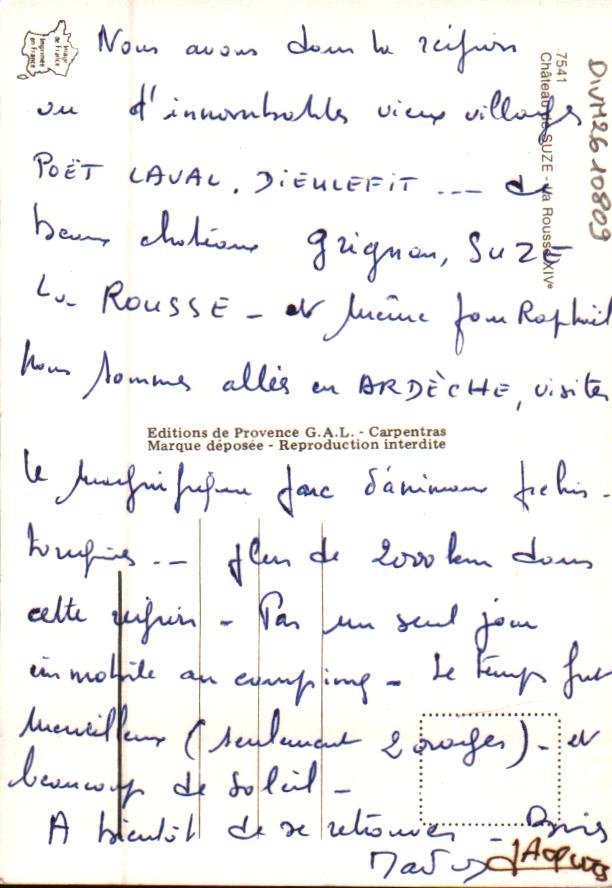 Nous avons dans la région
vu d'innombrables vieux villages
POËT LAVAL, DIEULEFIT --- de
beaux châteaux Grignan, SUZE
La ROUSSE - et même pour Raphaël
nous sommes allés en ARDÈCHE, visiter
Editions de Provence G.A.L. - Carpentras
Marque déposée - Reproduction interdite
le magnifique parc d'animaux préhis-
toriques --- plus de 2000 km dans
cette région - Pas un seul jour
immobile au camping - Le temps fut
merveilleux (seulement 2 orages) - et
beaucoup de soleil -
A bientôt de se retrouver -
JACQUES
Image
de France
Imprimée
en France
7541
Château de SUZE - la Rousse XIVe
DIVM26 10809